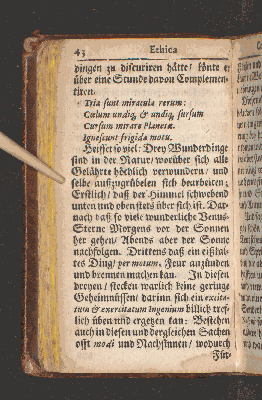 43 Ethica
dingen zu discuriren hätte / könte er
über eine Stunde davon Complemen-
tiren.
Tria sunt miracula rerum:
Cœlum undiq, & undiq, sursum
Cursum mirare Planetæ.
Ignescunt frigida motu.
Heisset so viel: Drey Wunderdinge
sind in der Natur / worüber sich alle
Gelährte höchlich verwundern / und
selbe außzugrübelen sich bearbeiten;
Erstlich / daß der Himmel schwebend
unten und oben stets über sich ist. Dar-
nach daß so viele wunderliche Venus-
Sterne Morgens vor der Sonnen
her gehen / Abends aber der Sonne
nachfolgen. Drittens daß ein eißkal-
tes Ding / per motum, Feur anzünden
und brennen machen kan. In diesen
dreyen / stecken warlich keine geringe
Geheimnüssen / darinn sich ein excita-
tum & exercitatum ingenium billich treff-
lich üben und ergetzen kan: Bestehen
auch in diesen und dergleichen Sachen
offt modi und Nachsinnen / wodurch
Für-